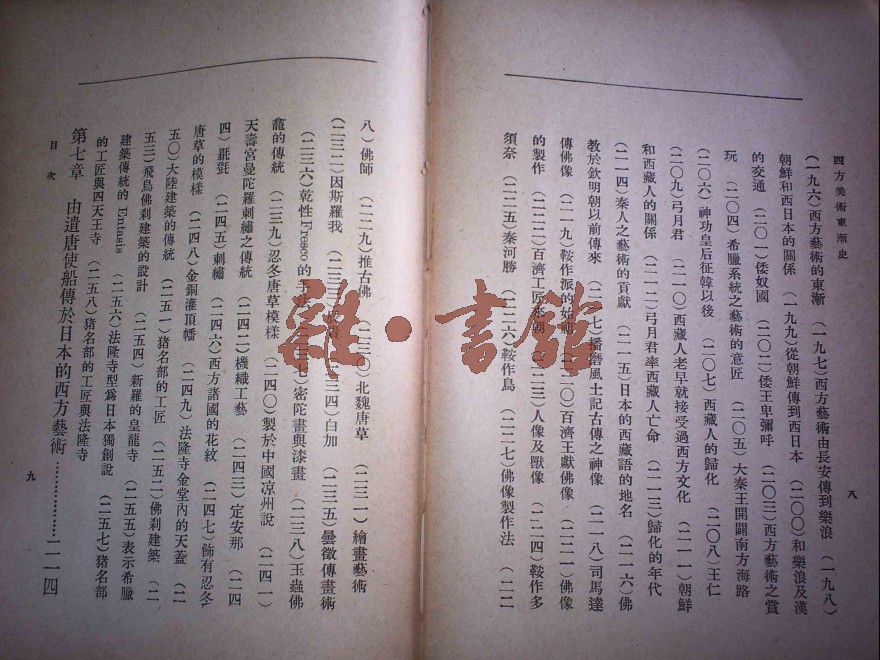 西方美術東漸史
八
(一九六)西方藝術的東漸 (一九七)西方藝術由長安傳到樂浪 (一九八)
朝鮮和西日本的關係 (一九九)從朝鮮傳到西日本 (二〇〇)和樂浪及漢
的交通 (二〇一)倭奴國 (二〇二)倭王卑彌呼 (二〇三)西方藝術之賞
玩 (二〇四)希臘系統之藝術的意匠 (二〇五)大秦王開闢南方海路
(二〇六)神功皇后征韓以後 (二〇七)西藏人的歸化 (二〇八)王仁
(二〇九)弓月君 (二一〇)西藏人老早就接受過西方文化 (二一一)朝鮮
和西藏人的關係 (二一二)弓月君率西藏人亡命 (二一三)歸化的年代
(二一四)秦人之藝術的貢獻 (二一五)日本的西藏語的地名 (二一六)佛
教於欽明朝以前傳來 (二一七)播磨風土記古傳之神像 (二一八)司馬達
傳佛像 (二一九)鞍作派的始祖 (二二〇)百濟王獻佛像 (二二一)佛像
的製作 (二二二)百濟工匠來朝 (二二三)人像及獸像 (二二四)鞍作多
須奈 (二二五)秦河勝 (二二六)鞍作鳥 (二二七)佛像製作法 (二二
八)佛師 (二二九)推古佛 (二三〇)北魏唐草 (二三一)繪畫藝術
(二三二)因斯羅我 (二三三) (二三四)白加 (二三五)曇徵傳畫術
(二三六)乾性Fresco的手法 (二三七)密陀畫與漆畫 (二三八)玉蟲佛
龕的傳統 (二三九)忍冬唐草模樣 (二四〇)製於中國凉州說 (二四一)
天壽宮曼陀羅刺繡之傳統 (二四二)機織工藝 (二四三)定安那 (二四
四)氈毯 (二四五)刺繡 (二四六)西方諸國的花紋 (二四七)飾有忍冬
唐草的模樣 (二四八)金銅灌頂幡 (二四九)法隆寺金堂內的天蓋 (二
五〇)大陸建築的傳統 (二五一)猪名部的工匠 (二五二)佛刹建築 (二
五三)飛鳥佛刹建築的設計 (二五四)新羅的皇龍寺 (二五五)表示希臘
建築傳統的Entasis (二五六)法隆寺型爲日本獨創說 (二五七)猪名部
的工匠與四天王寺 (二五八)猪名部的工匠與法隆寺
第七章 由遣唐使船傳於日本的西方藝術……………二一四
目次
九
雜·書館